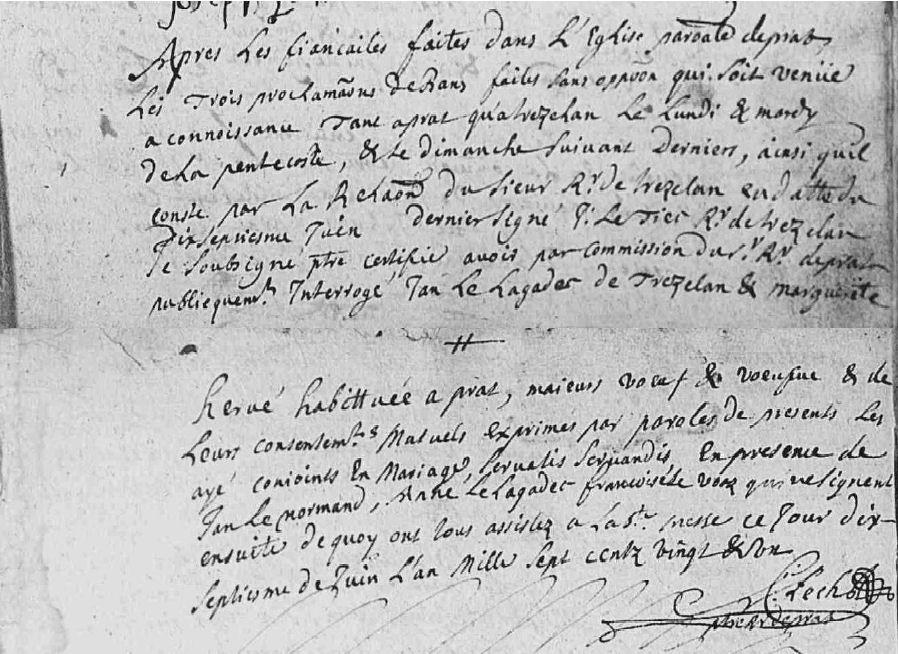 Apres Les fiancailes faites dans L'Eglise paroale de prat,
Les Trois proclamaons de Bans faites sans oppoon qui soit venüe
a connoissance Tant a prat qu'a trezelan Le Lundi & mardy
de La pentecoste, & le dimanche suivant Derniers, ainsi qu'il
conste par La Relaon du sieur Rr. de trezelan en datte du
Dixseptiesme Juin dernier signé Le Tiec Rr. de trezelan
Je soubsigné ptre certifie avoir par commission du sr. Rr. de prat
publiequemt. Interrogé Jan Le Lagadec de Trezelan & marguerite
Hervé habittuée a prat, maieurs voeuf & voeufue & de
Leurs consentemts. Mutuels exprimes par paroles de presents Les
ayé conioints En Mariage, servatis servandis, En presence de
Jan Le normand, Anne Le Lagadec francoise Le qui ne signent
ensuite de quoy ont tous assistez a La Ste. messe ce Jour dix-
septiesme de Juin L'an Mille sept centz vingt & un